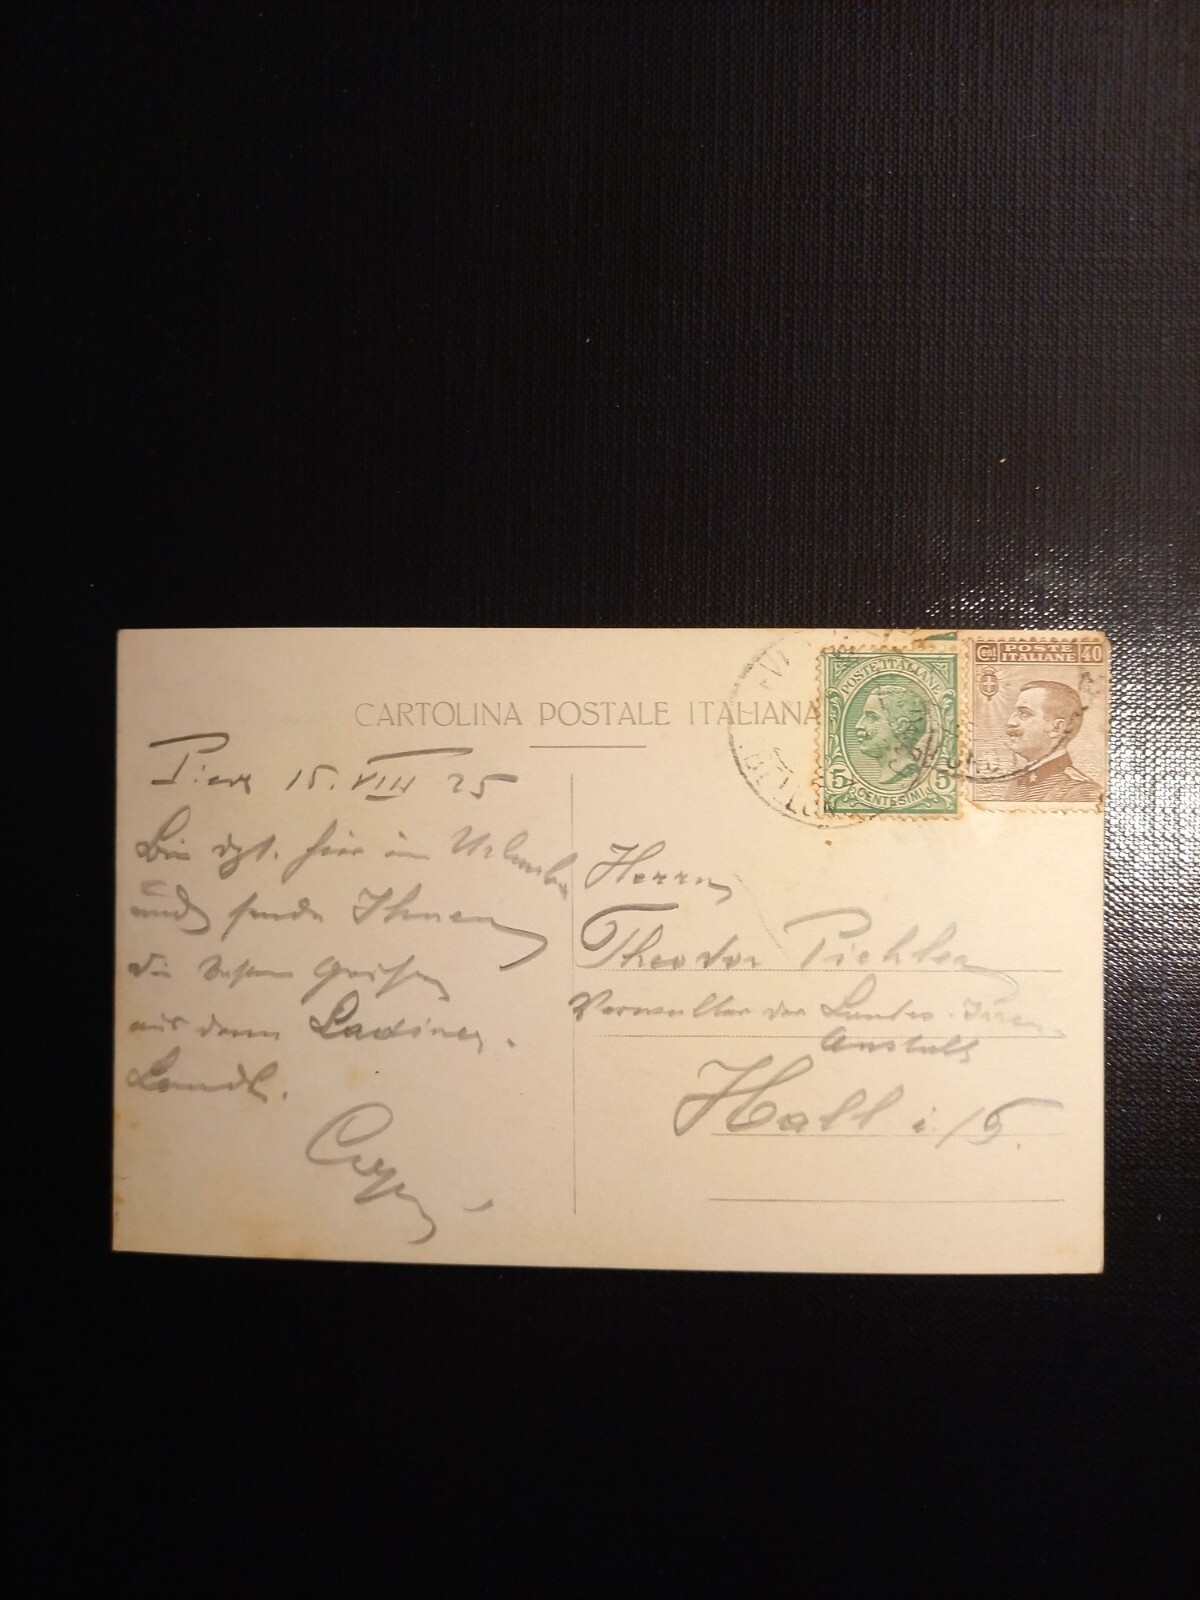 CARTOLINA POSTALE ITALIANA
POSTE ITALIANE
5 5
CENTESIMI
Cent POSTE ITALIANE 40
Pieve 15. VIII 25
Bin dzt. hier im Urlaube
und sende Ihnen
die besten Grüsse
aus dem Ladiner-
Landl.
Herrn
Theodor Pichler
Verwalter der Landes-Irren-
Anstalt
Hall i/T.